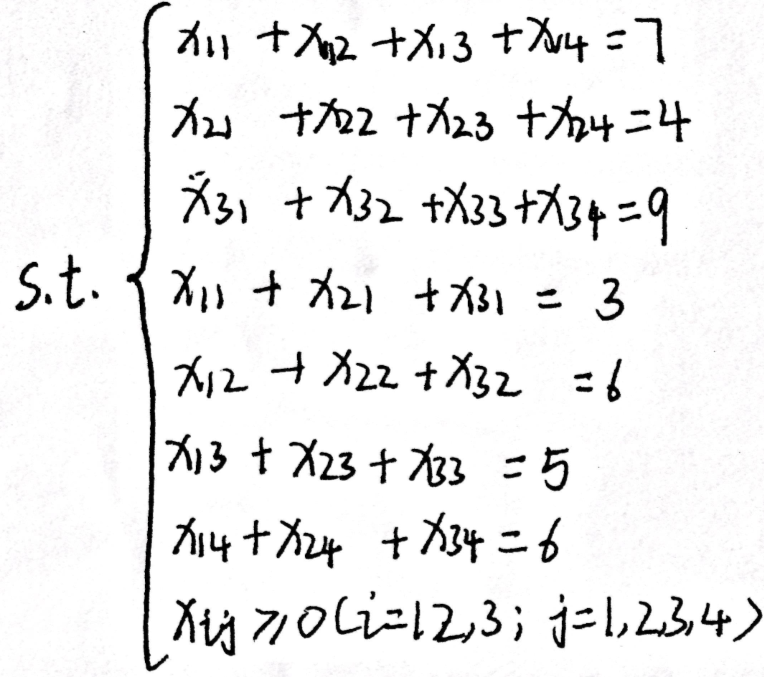 x11 + x12 + x13 + x14 = 7
x21 + x22 + x23 + x24 = 4
x31 + x32 + x33 + x34 = 9
s.t.
x11 + x21 + x31 = 3
x12 + x22 + x32 = 6
x13 + x23 + x33 = 5
x14 + x24 + x34 = 6
xij ⩾ 0 (i=1 2,3; j=1,2,3,4)